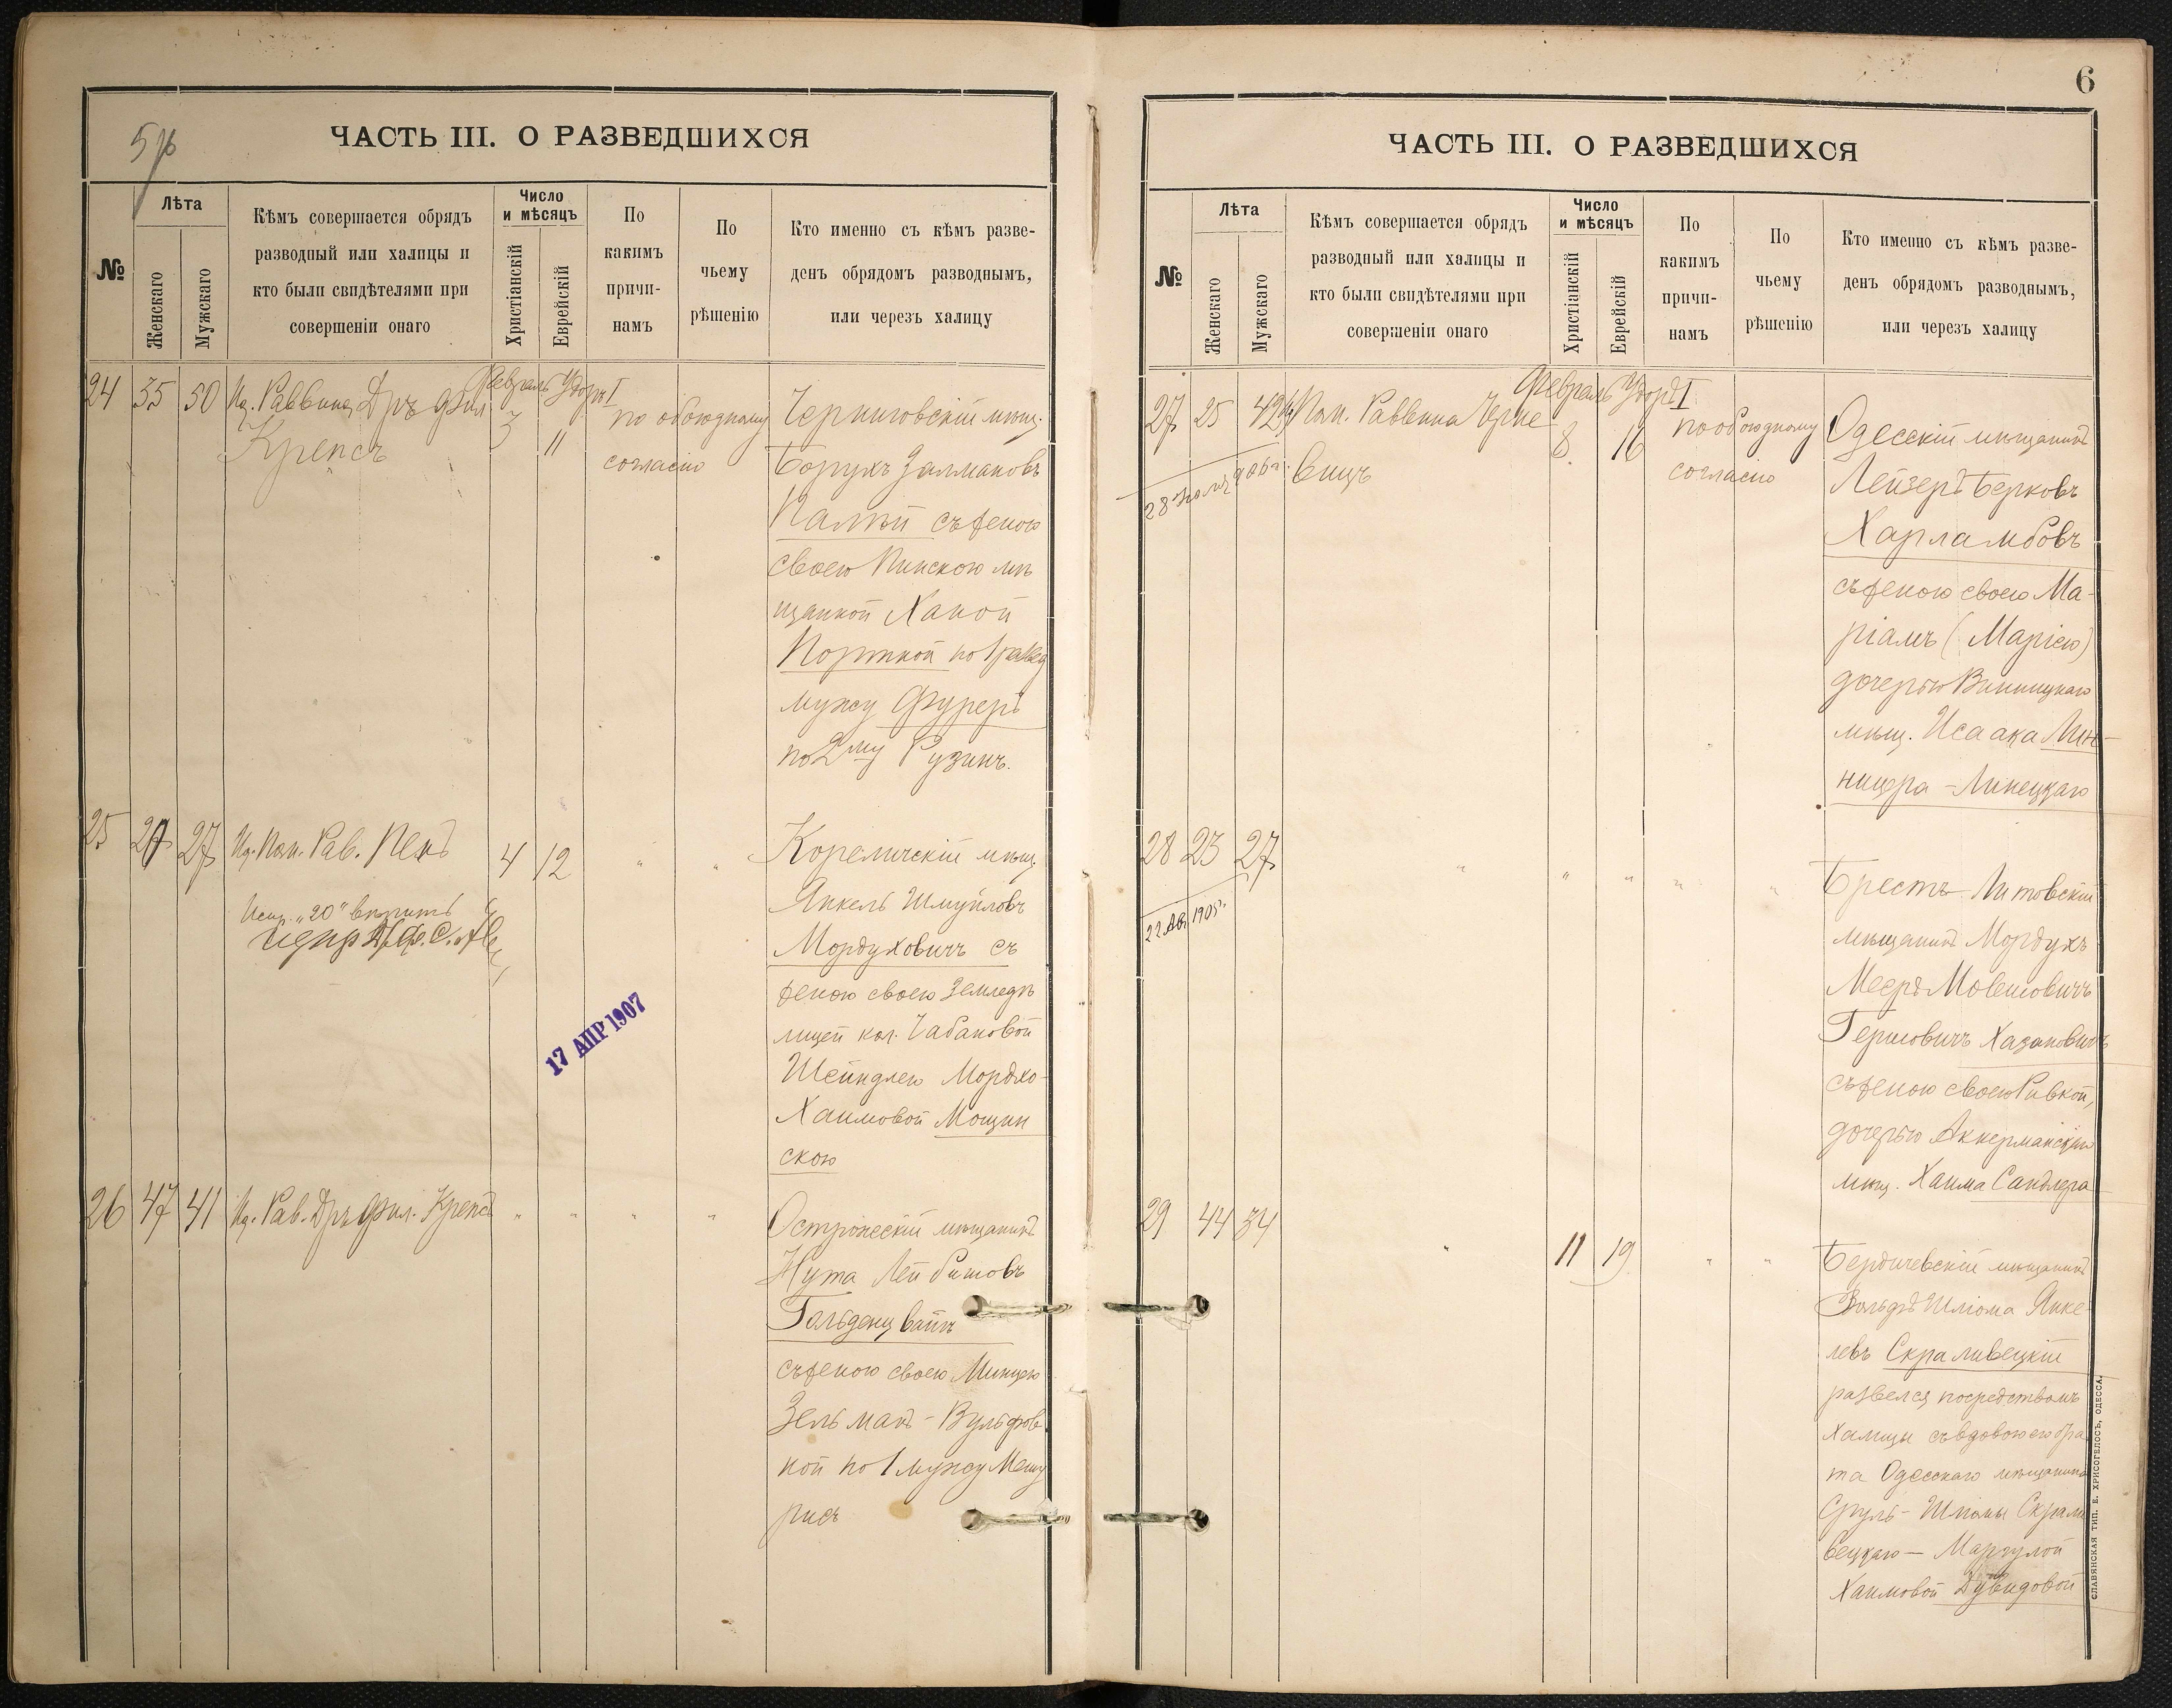 ЧАСТЬ III. О РАЗВЕДШИХСЯ
№
Лѣта
Женскаго
Мужскаго
Кѣмъ совершается обрядъ
разводный или халицы и
кто были свидѣтелями при
совершеніи онаго
Число
и мѣсяцъ
Христіанскій
Еврейскій
По
какимъ
причи-
намъ
По
чьему
рѣшенію
Кто именно съ кѣмъ разве-
денъ обрядомъ разводнымъ,
или черезъ халицу
24 35 50 Ид. Раввина Дръ Фил.
Крепсъ
Февраль
3
11
по обоюдному
согласію
Черниговскій мѣщ.
Борухъ Залмановъ
Палѣй съ женою
своею Пинскою мѣ
щанкой Ханой
Портной по 1 развед
мужу Фуреръ
по 2му Рузинъ.
25 27 27 Ид. Пом. Рав. Пенъ
4 12 " "
Кореличскій мѣщ.
Янкель Шмуйловъ
Мордуховичъ съ
женою своею Земледѣ
лицей кол. Чабановой
Шейндлею Мордхо-
Хаимовой Мощин
скою
17 АПР 1907
26 47 41 Ид. Рав. Дръ Фил. Крепсъ " " " "
Острожескій мѣщанинъ
Нута Лейбишовъ
Гольденцвайгъ
съ женою своею Минцею
Зельманъ-Вульфов
ной по 1 мужу
6
ЧАСТЬ III. О РАЗВЕДШИХСЯ
№
Лѣта
Женскаго
Мужскаго
Кѣмъ совершается обрядъ
разводный или халицы и
кто были свидѣтелями при
совершеніи онаго
Число
и мѣсяцъ
Христіанскій
Еврейскій
По
какимъ
причи-
намъ
По
чьему
рѣшенію
Кто именно съ кѣмъ разве-
денъ обрядомъ разводнымъ,
или черезъ халицу
27 25 42 Пом. Раввина Черке
вицъ
Февраль
8
16
по обоюдному
согласію
Одесскій мѣщанинъ
Лейзеръ Берковъ
Харламбовъ
съ женою своею Ма-
ріамъ (Маріею)
дочерью Винницкаго
мѣщ. Исаака Лин-
ницера-Линецкаго
28 23 27 " " " " "
22 Ав. 1905г.
Брестъ-Литовскій
мѣщанинъ Мордухъ
Мееръ Мовшовичъ
Гершовичъ Хазановичъ
съ женою своею Ривкой,
дочерью Аккерманскаго
мѣщ. Хаима Сандлера
29 44 34 " 11 19 " "
Бердичевскій мѣщанинъ
Вольфъ Шліома Янке-
левъ Скраливецкій
развелся посредствомъ
халицы съ вдовою его бра
та Одесскаго мѣщанина
Сруль-Шліомы Скрали
вецкаго — Маргулой
Хаимовой Дувидовой
СЛАВЯНСКАЯ ТИП. Е. ХРИСОГЕЛОСЪ, ОДЕССА.